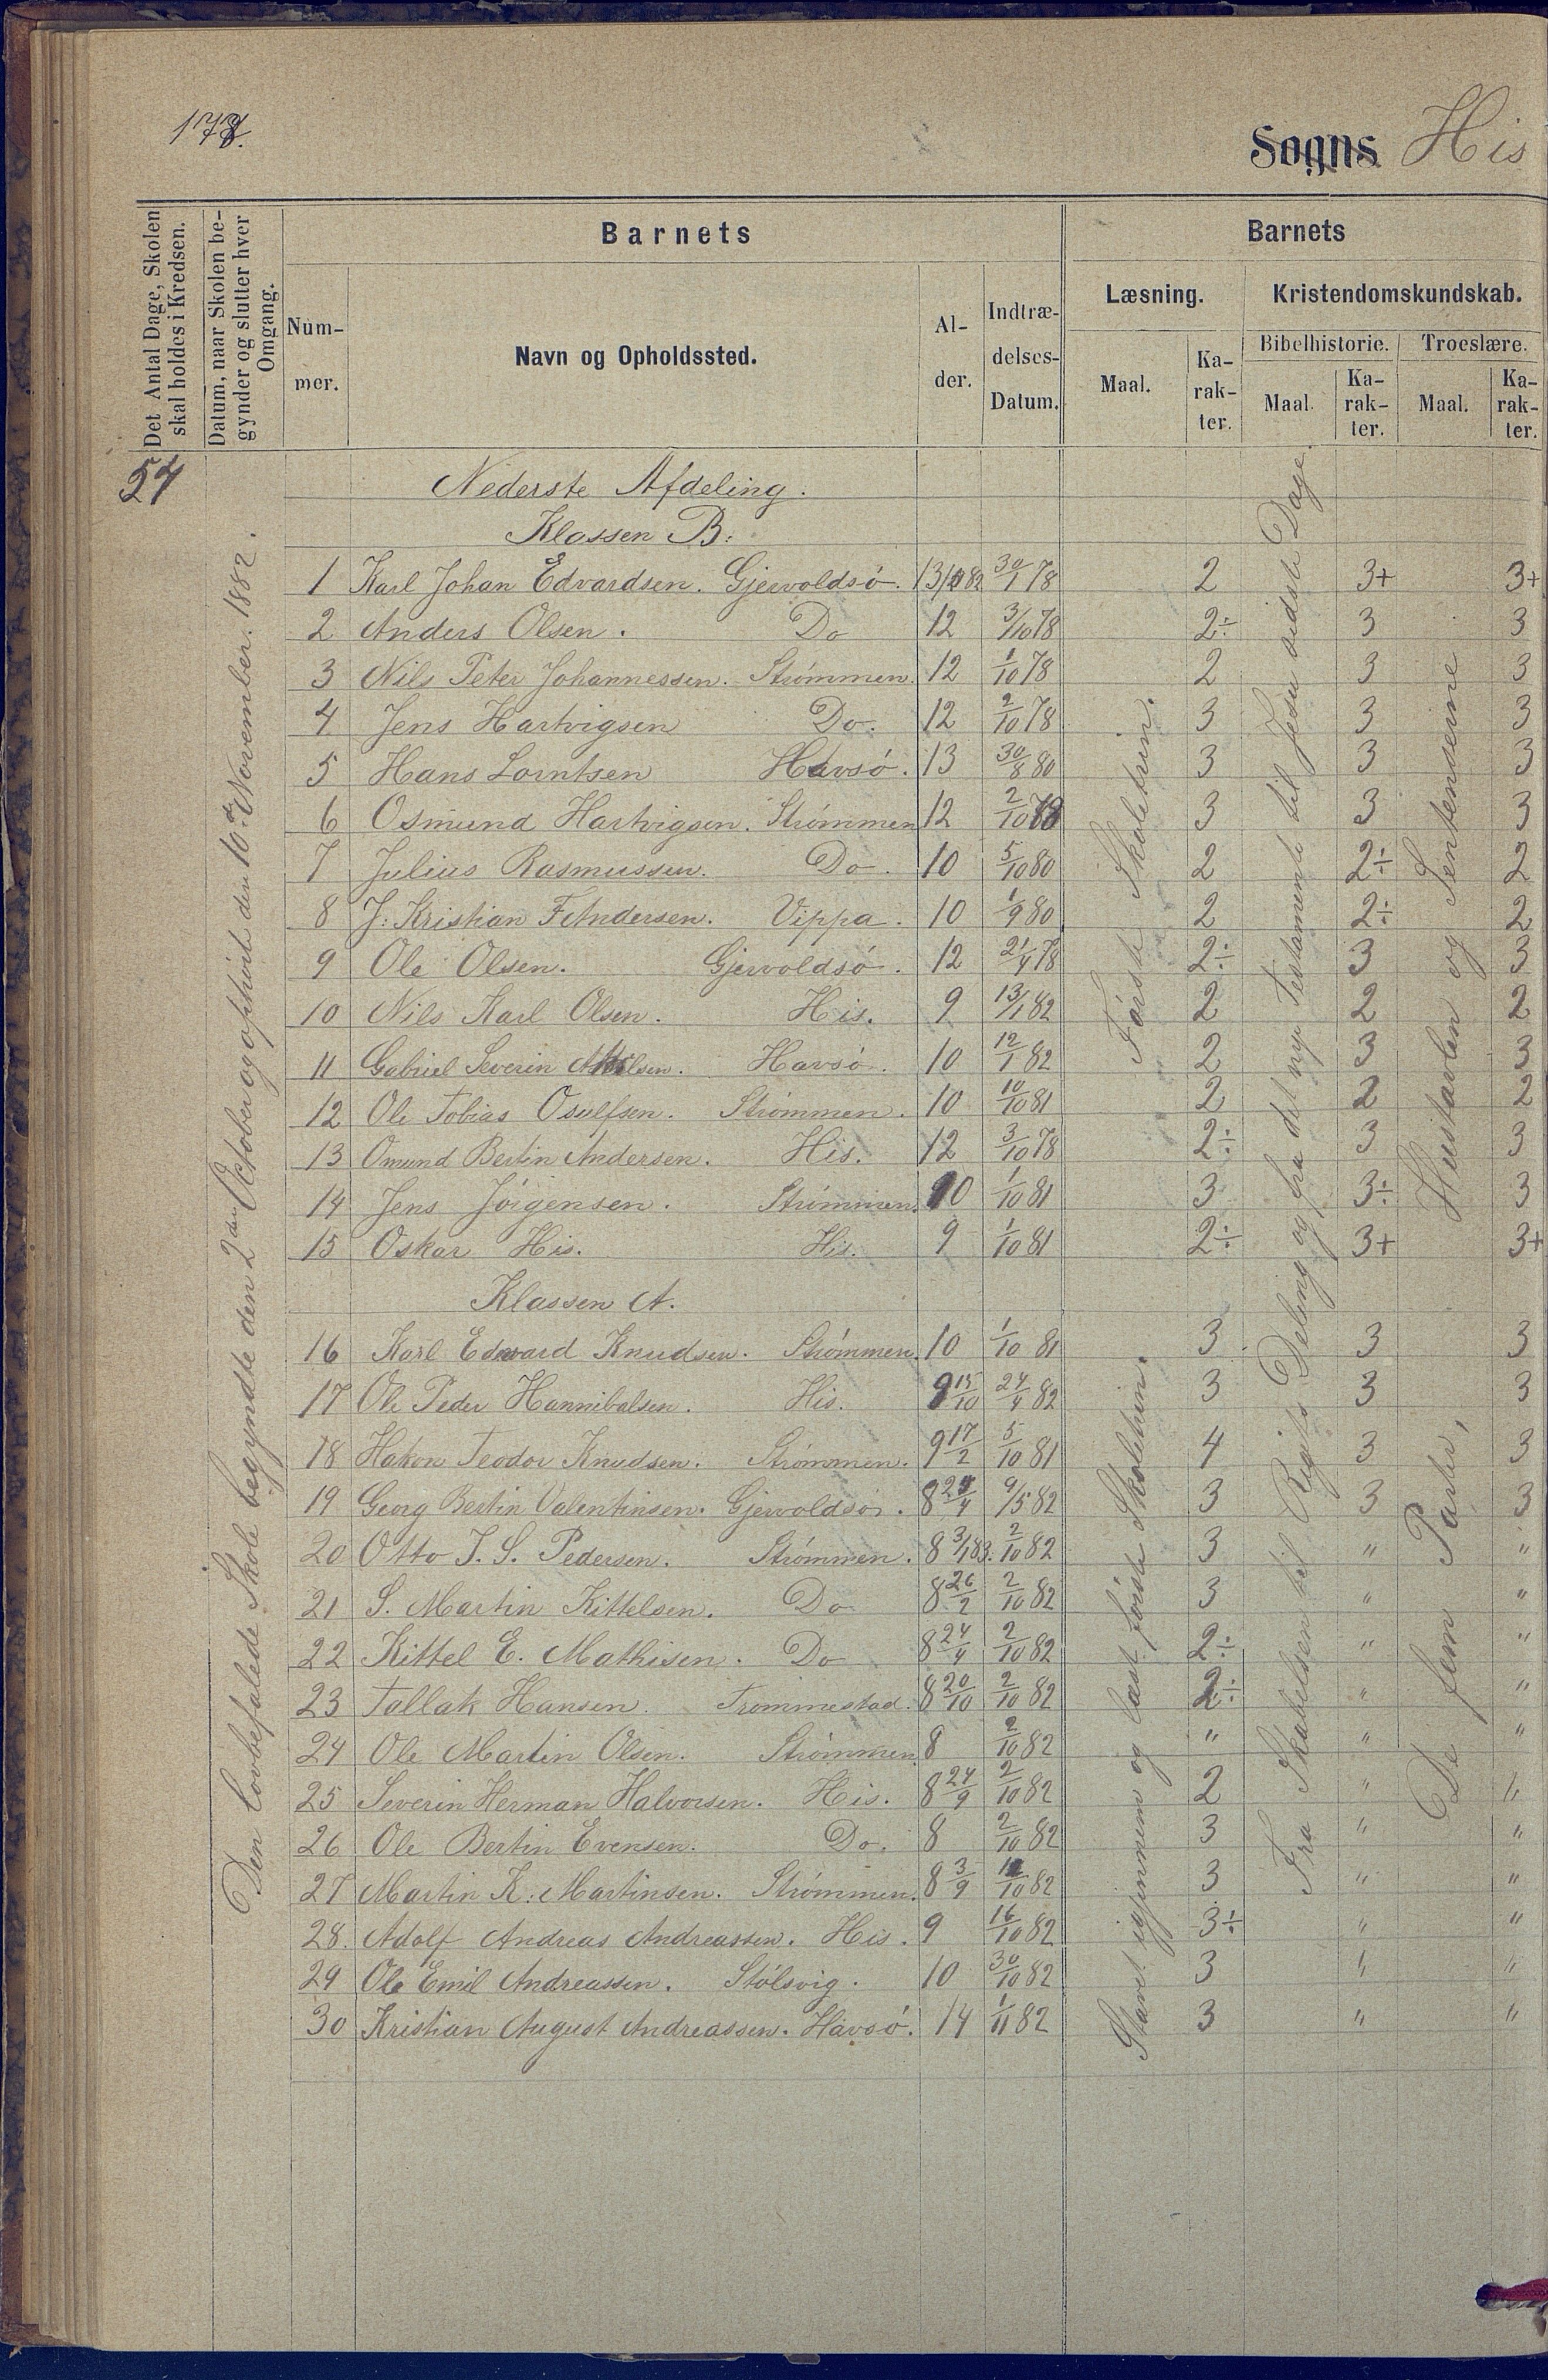 178.
Sogns His
Det Antal Dage, Skolen skal holdes i Kredsen.
Datum, naar Skolen begynder og slutter hver Omgang.
Barnets
Barnets
Nummer.
Navn og Opholdssted.
Alder.
Indtrædelses-Datum.
Læsning.
Kristendomskundskab.
Maal.
Karakter.
Bibelhistorie.
Troeslære.
Maal.
Karakter.
Maal.
Karakter.
54
Den lovbefalede Skole begyndte den 2den October og ophört den 10de November. 1882.
Nederste Afdeling.
Klassen B:
1 Karl Johan Edvardsen. Gjervoldsö. 30/1 78 2 3+ 3+
2 Anders Olsen. Do 12 3/10 78 2÷ 3 3
3 Nils Peter Johannessen. Strömmen. 12 1/10 78 2 3 3
4 Jens Hartvigsen Do. 12 2/10 78 3 3 3
5 Hans Lorntsen Havsö. 13 30/8 80 3 3 3
6 Osmund Hartvigsen. Strömmen 12 2/10 78 3 3 3
7 Julius Rasmussen. Do. 10 5/10 80 2 2÷ 2
8 J: Kristian F Andersen. Vippa. 10 1/9 80 2 2÷ 2
9 Ole Olsen. Gjervoldsö. 12 21/4 78 2÷ 3 3
10 Nils Karl Olsen. His. 9 13/1 82 2 2 2
11 Gabriel Severin Havsö. 10 12/1 82 2 3 3
12 Ole Tobias Osulfsen. Strömmen. 10 10/10 81 2 2 2
13 Omund Bertin Andersen. His. 12 3/10 78 2÷ 3 3
14 Jens Jörgensen. Strömmen. 10 1/10 81 3 3÷ 3
15 Oskar His. His. 9 1/10 81 2÷ 3+ 3+
Klassen A.
16 Karl Edvard Knudsen. Strömmen. 10 1/10 81 3 3 3
17 Ole Peder Hannibalsen. His. 9 15/10 24/4 82 3 3 3
18 Hakon Teodor Knudsen. Strömmen. 9 17/2 5/10 81 4 3 3
19 Georg Bertin Valentinsen. Gjervoldsö. 8 9/5 82 3 3 3
20 Otto J. S. Pedersen. Strömmen. 8 3/1 83. 2/10 82 3 " "
21 S. Martin Kittelsen. Do 8 26/2 2/10 82 3 " "
22 Kittel E. Mathisen. Do 8 24/4 2/10 82 2÷ " "
23 Tallak Hansen. Trommestad. 8 20/10 2/10 82 2÷ " "
24 Ole Martin Olsen. Strömmen 8 2/10 82 " " "
25 Severin Herman Halvorsen. His. 8 24/9 2/10 82 2 " "
26 Ole Bertin Evensen. Do. 8 2/10 82 3 " "
27 Martin K: Martinsen. Strömmen. 8 3/9 /10 82 3 " "
28. Adolf Andreas Andreassen. His. 9 16/10 82 3÷ " "
29 Ole Emil Andreassen. Stölsvig. 10 30/10 82 3 " "
30 Kristian August Andreassen. Havsö. 14 1/11 82 3 " "
Förste Skoletrin.
Stavet igjennem og læst förste Skoletrin.
Fra Skabelsen til Rigets Deling og fra det nye Testamente til Jesu sidste Dage.
Hustavlen og Sentenserne
De fem Parter,